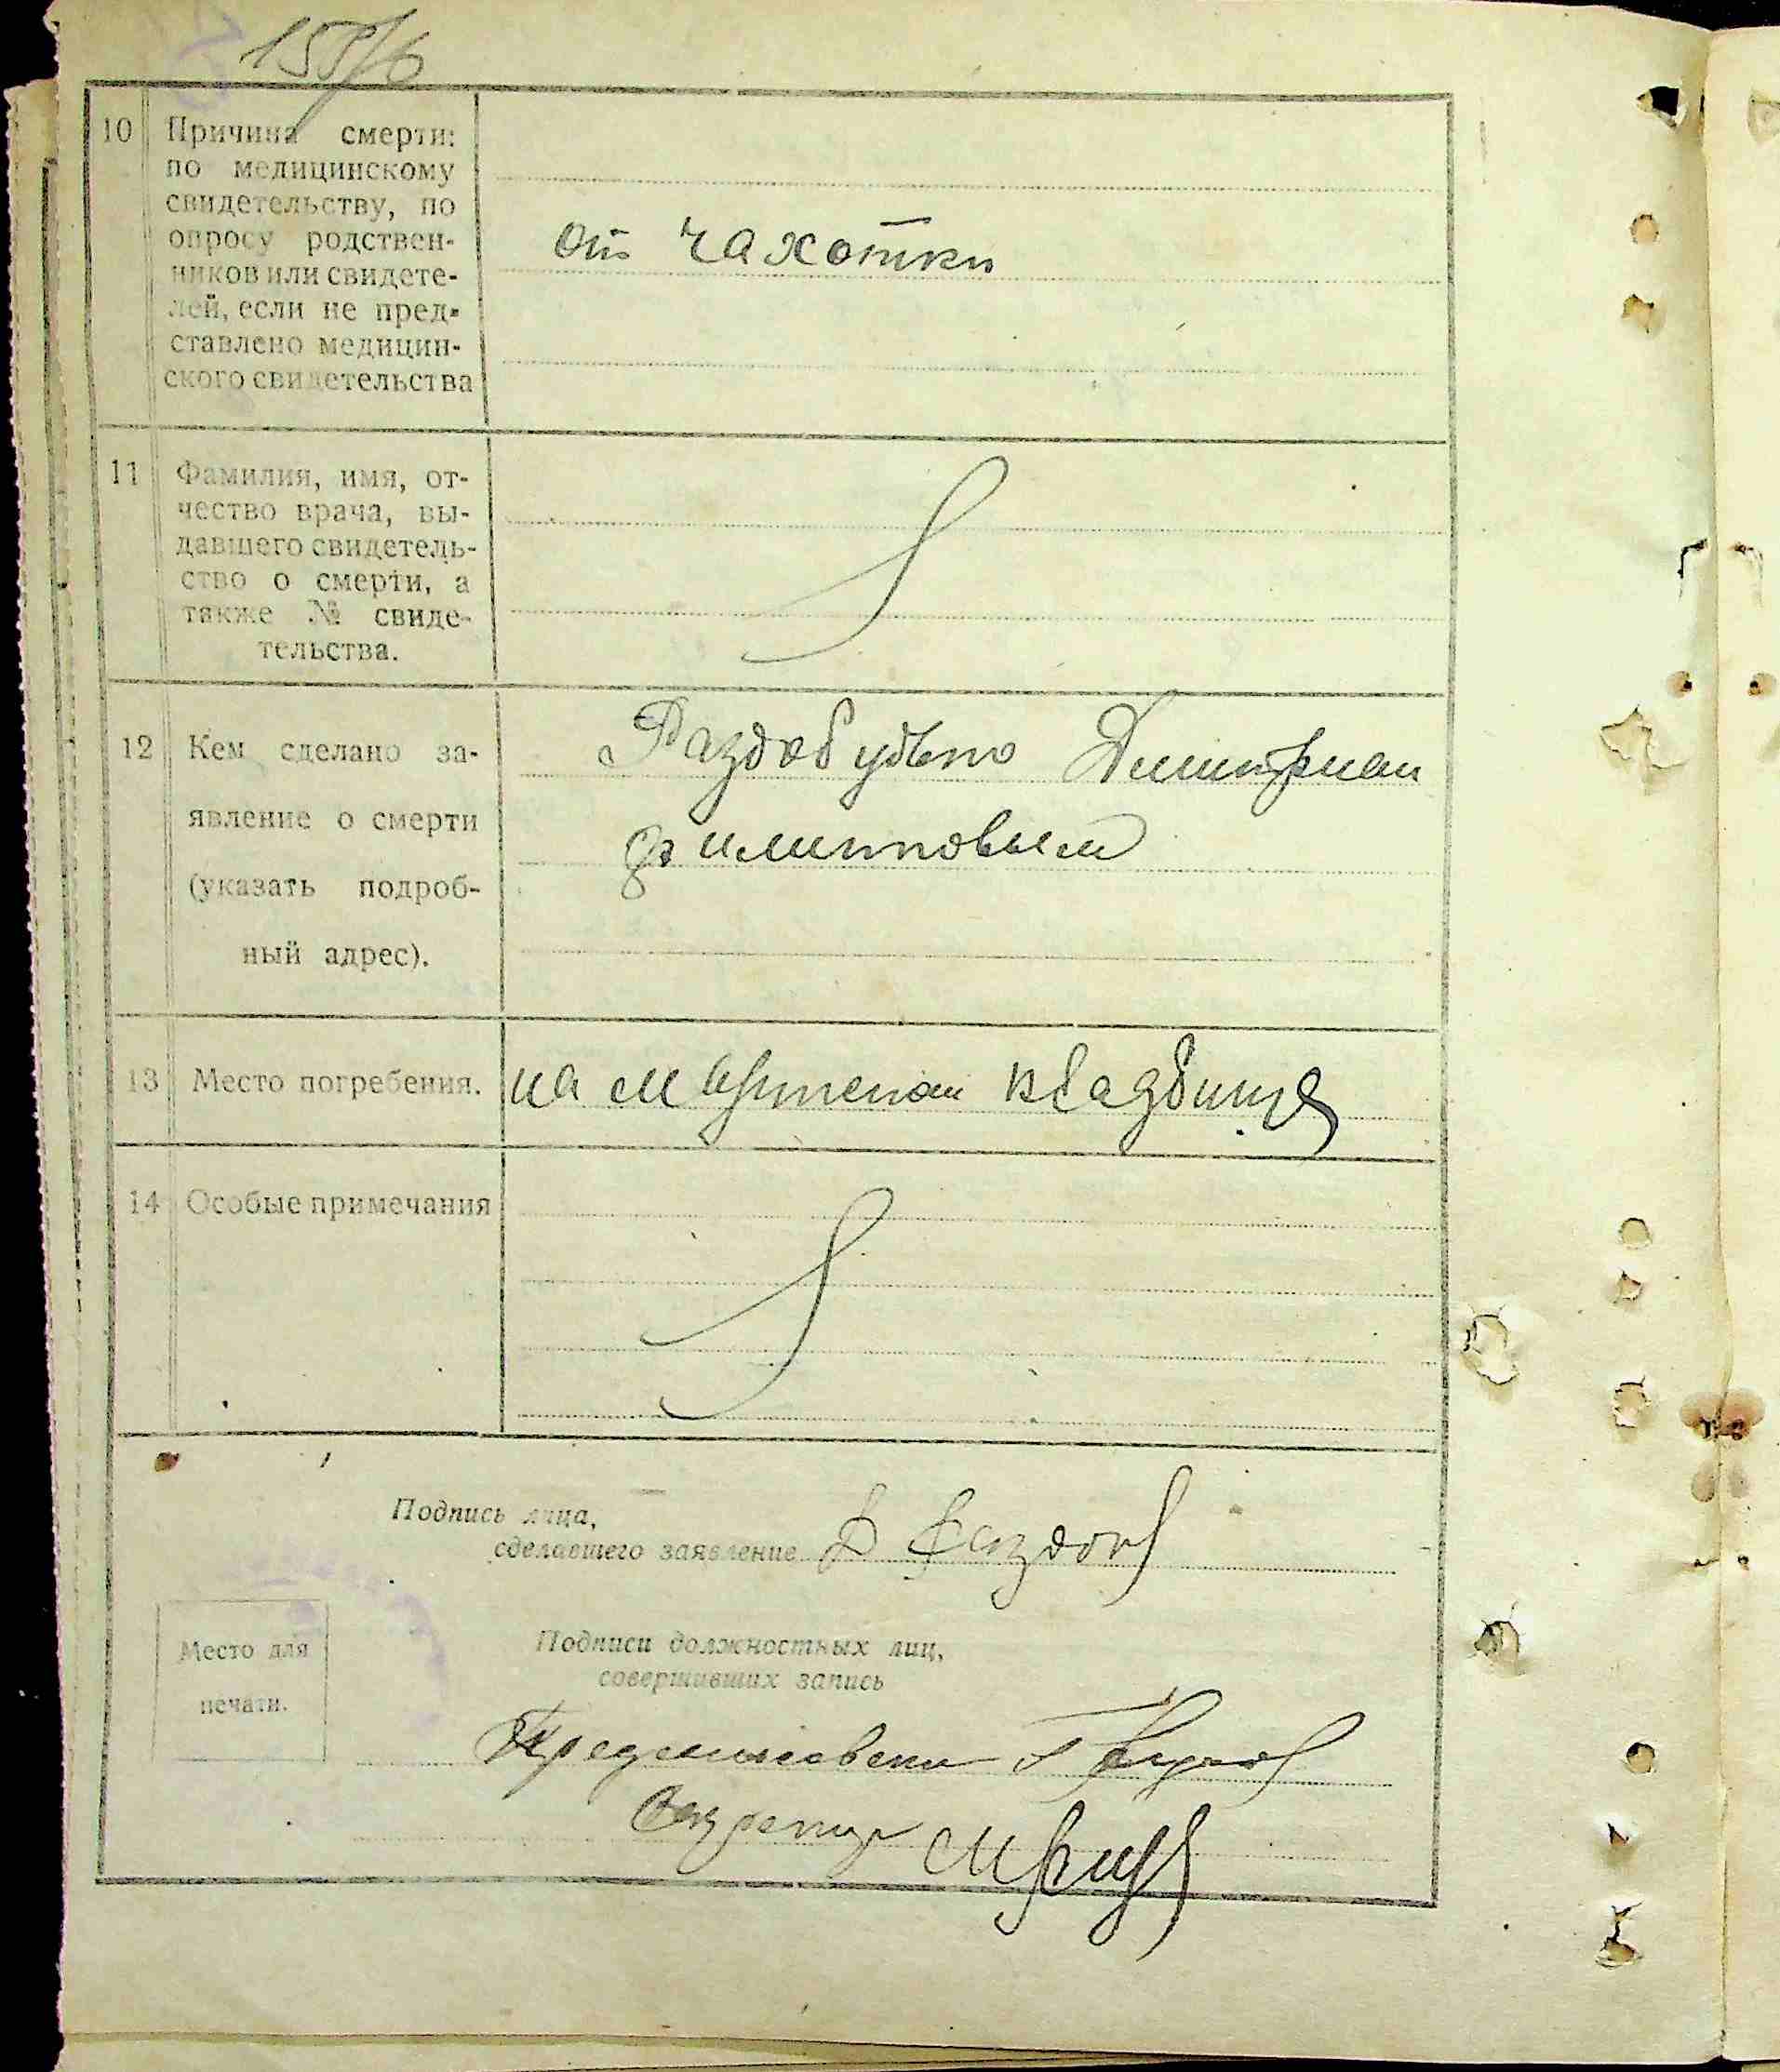 10 Причина смерти:
по медицинскому
свидетельству, по
опросу родствен-
ников или свидете-
лей, если не пред-
ставлено медицин-
ского свидетельства
от чахотки
11 Фамилия, имя, от-
чество врача, вы-
давшего свидетель-
ство о смерти, а
также № свиде-
тельства.
12 Кем сделано за-
явление о смерти
(указать подроб-
ный адрес).
Раздобудько Димитрием
Филипповым
13 Место погребения.
на кладбище
14 Особые примечания
Подпись лица,
сделавшего заявление
Место для
печати.
Подписи должностных лиц,
совершивших запись